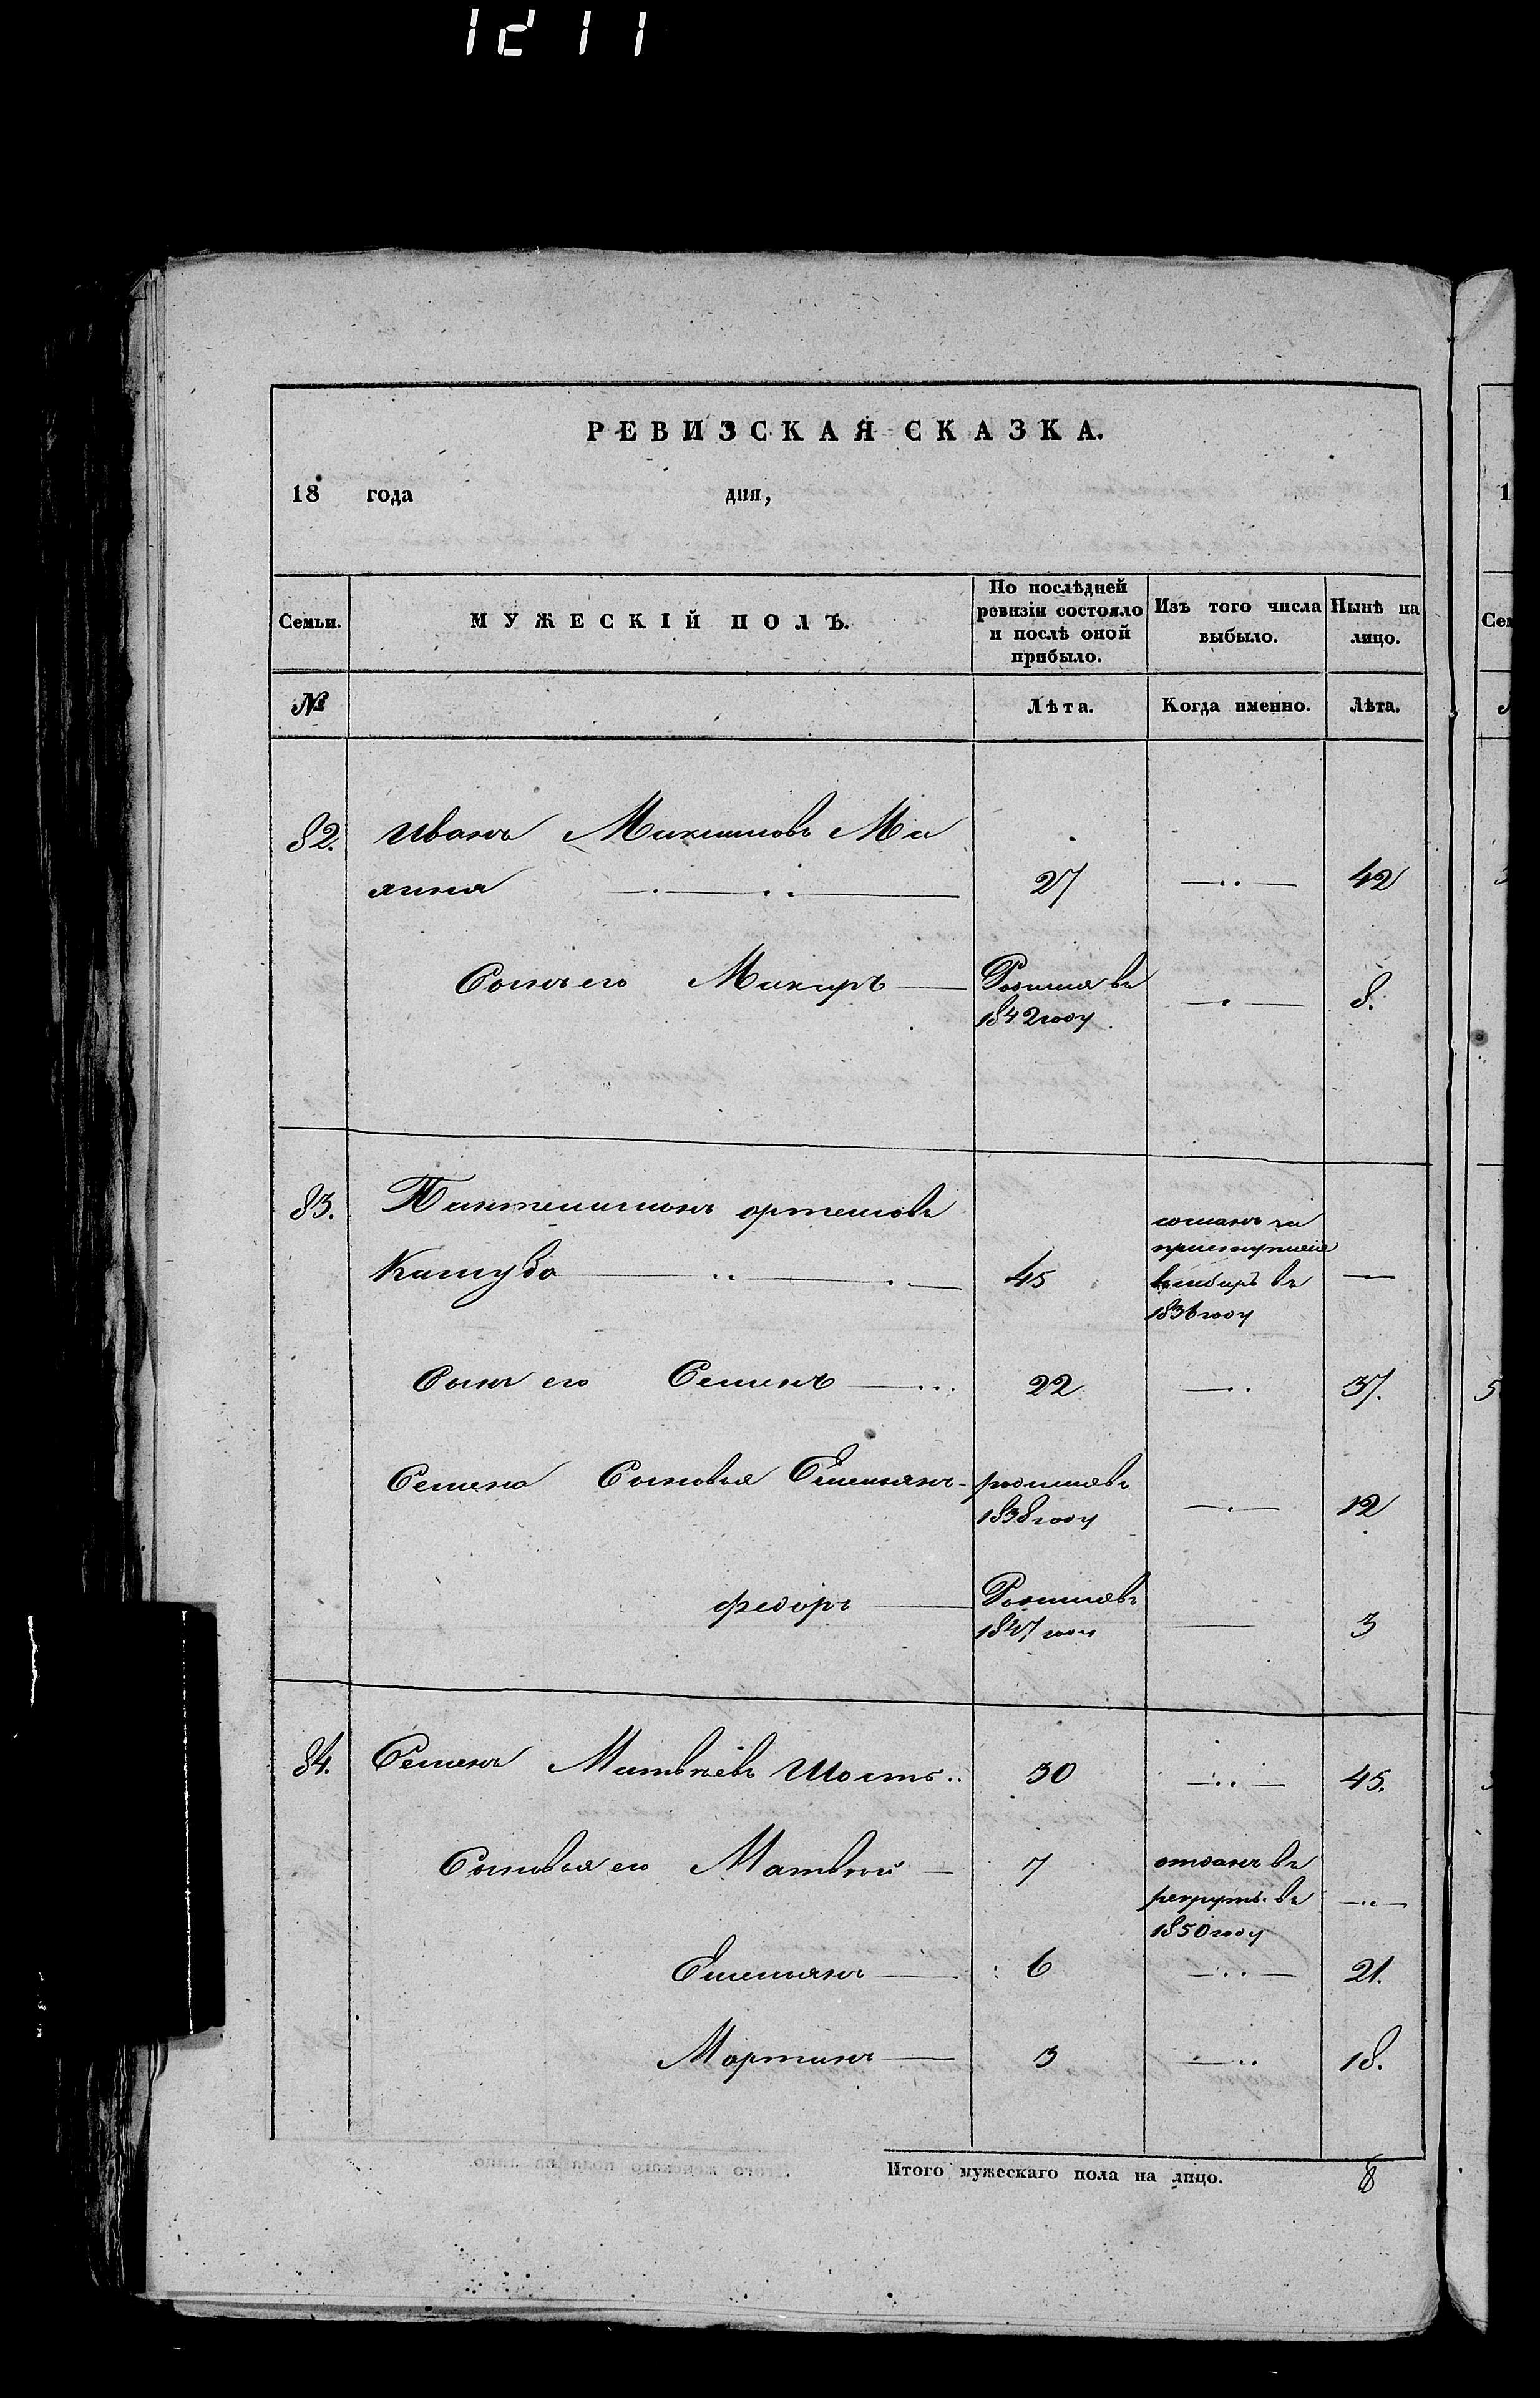 1211
РЕВИЗСКАЯ СКАЗКА.
18 года дня,
Семьи. МУЖЕСКІЙ ПОЛЪ. По послѣдней ревизіи состояло и послѣ оной прибыло. Изъ того числа выбыло. Нынѣ на лицо.
№ Лѣта. Когда именно. Лѣта.
82. Иванъ Максимовъ Ма
лина 27 42
Сынъ его Макаръ Родился въ 8.
1842 году
83. Пантелимонъ Артемовъ
Кашуба 45 сосланъ за
преступленіе
въ сибирь въ
1836 году
Сынъ его Семенъ 22 37.
Семена Сыновья Емельянъ родился въ 12
1838 году
Федоръ Родился въ 3
1847 году
84. Семенъ Матвѣевъ Шость 30 45.
Сыновья его Матвѣй 7 отданъ въ
рекруты въ
1850 году
Емельянъ 6 21.
Мартинъ 3 18.
Итого мужескаго пола на лицо. 8